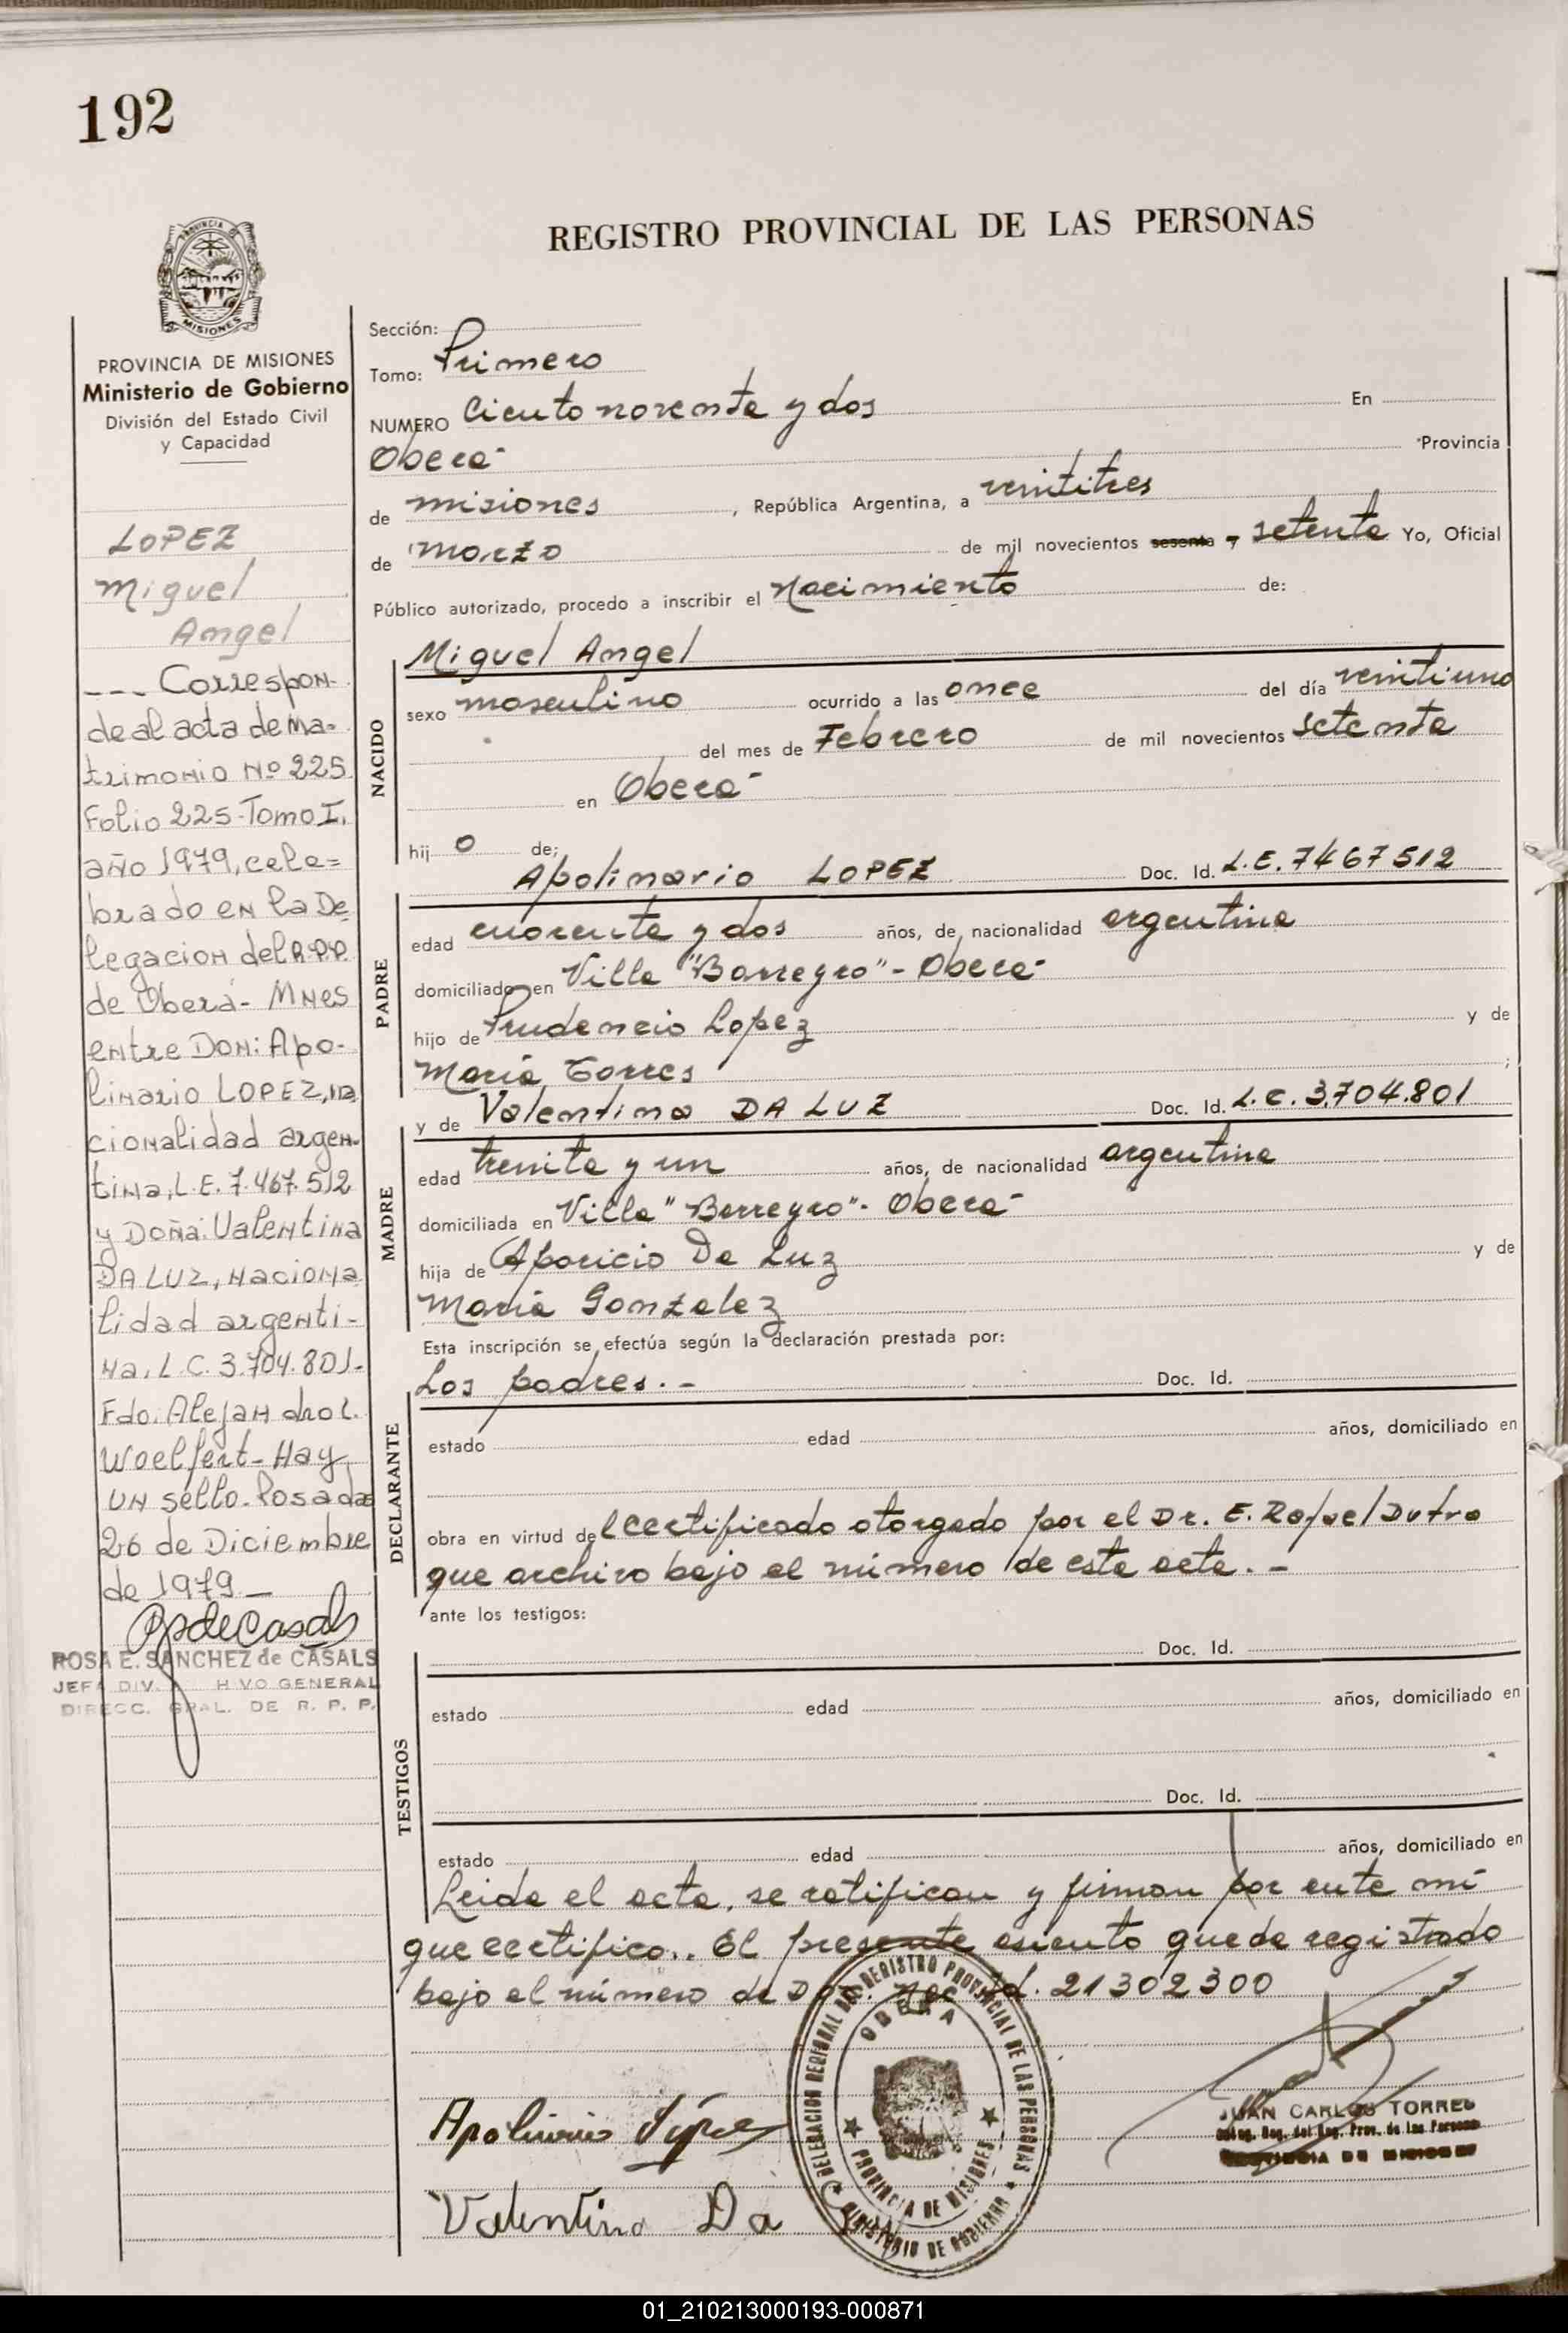 192
REGISTRO PROVINCIAL DE LAS PERSONAS
PROVINCIA
MISIONES
PROVINCIA DE MISIONES
Ministerio de Gobierno
División del Estado Civil
y Capacidad
LOPEZ
Miguel
Angel
--- Correspon-
de al acta de ma-
trimonio Nº 225
Folio 225-Tomo I,
año 1979, cele=
brado en la De
legacion del R.P.P.
de Oberá- Mnes
entre Don: Apo-
linario LOPEZ, na
cionalidad argen-
tina, L.E. 7.467.512
y Doña: Valentina
DA LUZ, naciona
lidad argenti-
na, L.C. 3.704.801-
Fdo. Alejandro L.
Woelfert- Hay
un sello. Posadas
26 de Diciembre
de 1979_
ROSA E. SANCHEZ de CASALS
JEFA DIV. HIVO GENERAL
DIRECC. GRAL. DE R. P. P.
Sección:
Tomo: Primero
NUMERO Ciento noventa y dos En
Oberá Provincia
de misiones, República Argentina, a veintitres
de marzo de mil novecientos sesenta y setenta Yo, Oficial
Público autorizado, procedo a inscribir el Nacimiento de:
Miguel Angel
NACIDO
sexo masculino ocurrido a las once del día veintiuno
del mes de Febrero de mil novecientos setenta
en Oberá
hij o de:
Apolinario LOPEZ Doc. Id. L.E. 7467512
PADRE
edad cuarenta y dos años, de nacionalidad argentina
domiciliado en Villa "Barreyro" - Oberá
hijo de Prudencio Lopez y de
María Torres ;
y de Valentina DA LUZ Doc. Id. L.C. 3.704.801
MADRE
edad treinta y un años, de nacionalidad argentina
domiciliada en Villa "Barreyro" - Oberá
hija de Aparicio Da Luz y de
María Gonzalez
Esta inscripción se efectúa según la declaración prestada por:
Los padres.- Doc. Id.
DECLARANTE
estado edad años, domiciliado en
obra en virtud del certificado otorgado por el Dr. E. Rafael Dutra
que archivo bajo el número de esta acta.-
ante los testigos:
Doc. Id.
TESTIGOS
estado edad años, domiciliado en
Doc. Id.
estado edad años, domiciliado en
Leida el acta, se ratifican y firman por ante mí
que certifico.. El presente asiento queda registrado
bajo el número de Doc. Nac. Id. 21302300
DELEGACION REGIONAL DEL REGISTRO PROVINCIAL DE LAS PERSONAS
OBERA
PROVINCIA DE MISIONES
MINISTERIO DE GOBIERNO
Apolinario López
Valentina Da
JUAN CARLOS TORRES
Deleg. Reg. del Reg. Prov. de las Personas
PROVINCIA DE MISIONES
01_210213000193-000871